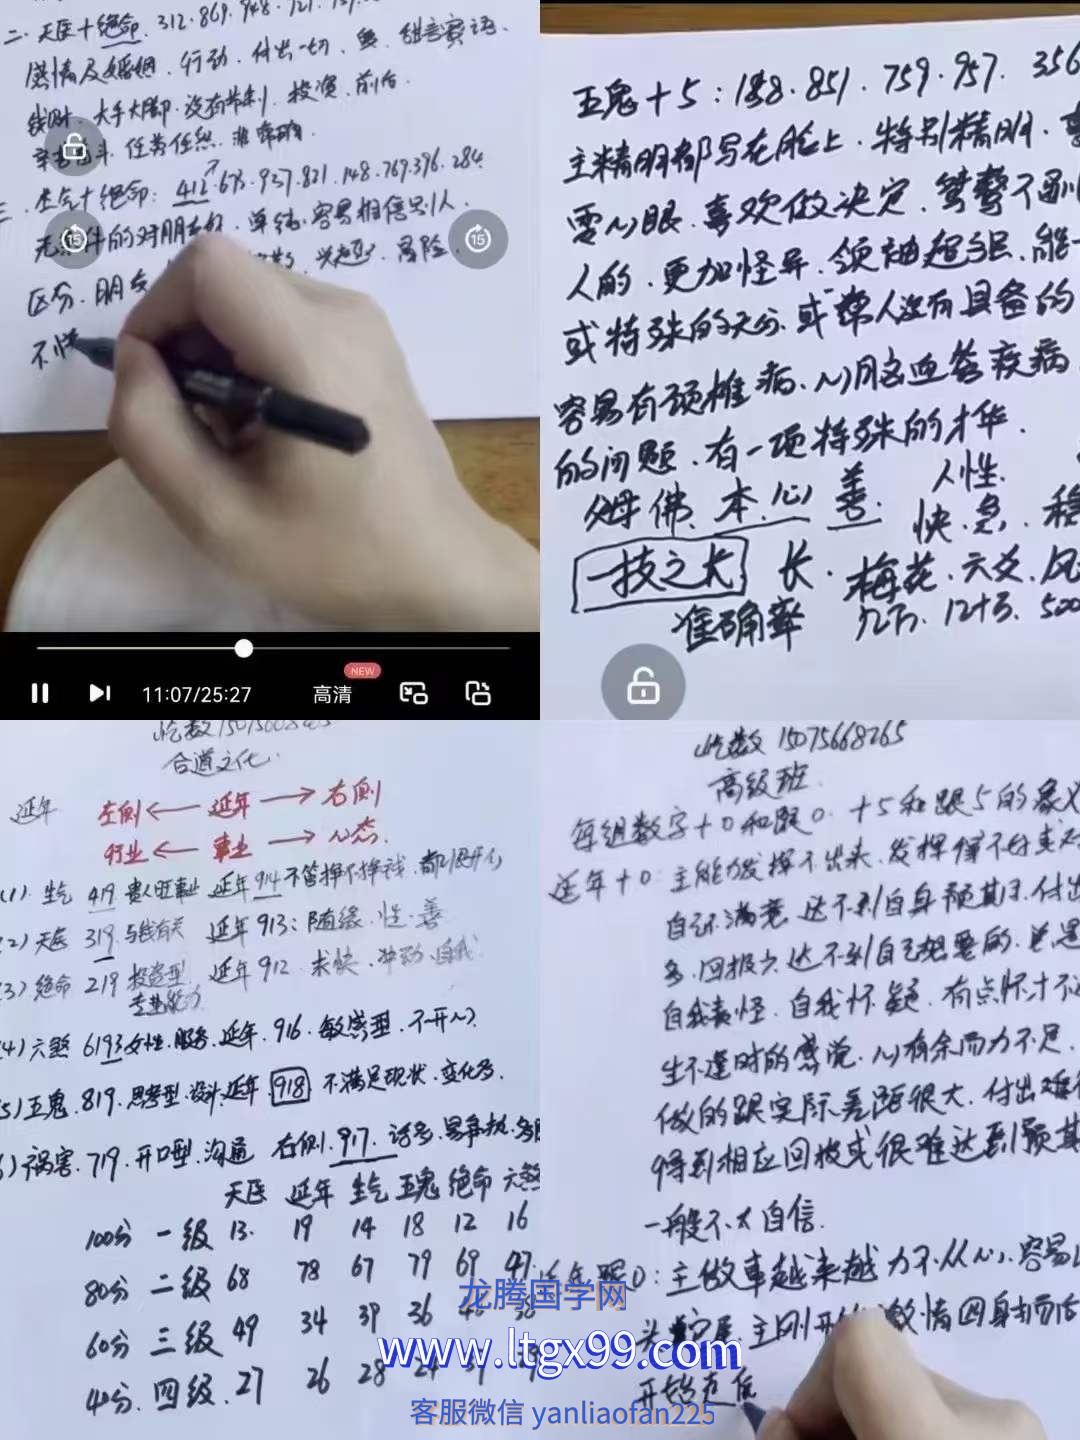 二、天医十绝命.312.869.948.721.
感情及婚姻.行动.付出一切.
钱财.大手大脚.没有节制.投资.前后.
三.生气十绝命: 412.678.937.821.148.769.396.284
无条件的对朋友好.单纯.容易相信别人.
冒险.
区分.朋友
不懂
11:07/25:27
NEW
高清
15
15
五鬼+5:188.851.759.957.356
主精明都写在脸上.特别精明.
要心眼.喜欢做决定.鸳鸯不
人的.更加怪异.领袖超强.能
或特殊的天分.或常人没有具备的
容易有颈椎病.心脑血管疾病
的问题.有一项特殊的才华.
父母佛.本.心善.人性.
快.急.稳
一技之长 长.梅花.六爻.风
准确率 九万.12十万.500
屹数
合道文化.
延年 左侧 ← 延年 → 右侧
行业 ← 事业 → 心态.
(1).生气 419 贵人旺事业 延年914不管挣不挣钱.都很开心
(2)天医 319.与钱有关 延年913:随缘.性.善
(3)绝命 219投资型 延年912.求快.冲动.自我
专业能力
(4)六煞 6193女性.服务.延年.916.敏感型.不开心.
(5)五鬼.819.思考型.设计.延年918 不满足现状.变化多.
祸害.719.开口型.沟通 右侧.917.话多.易争执.
天医 延年 生气 五鬼 绝命 六煞
100分 一级 13. 19 14 18 12 16
80分 二级 68 78 67 79 69 47
60分 三级 49 34 39 36
40分.四级.27 26 28 24 37
屹数 15075668265
高级班.
每组数字+0和跟0.+5和跟5的象义
延年+0:主能力发挥不出来.发挥得不
自己不满意.达不到自身预期.付出
多.回报少.达不到自己想要的.总是
自我责怪.自我怀疑.有点怀才不
生不逢时的感觉.心有余而力不足.
做的跟实际差距很大.付出难
得到相应回报或很难达到预其
一般不太自信.
延年跟0:主做事越来越力不从心.容易
头蛇尾.主刚开始激情四射而后
开始走低
龙腾国学网
www.ltgx99.com
客服微信 yanliaofan225